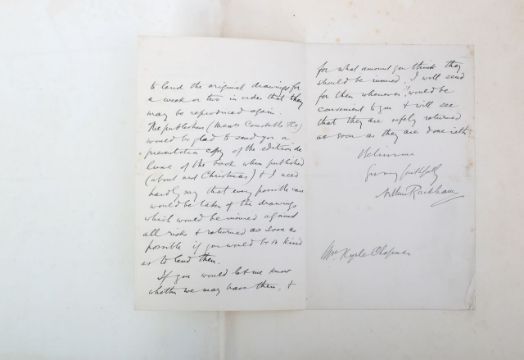 to lend the original drawings for
a week or two in order that they
may be reproduced again.
The publishers (Messrs Constable & Co)
would be glad to send you a
presentation copy of the edition de
luxe of the book when published
(about mid Christmas) & I need
hardly say that every possible care
would be taken of the drawings
which would be insured against
all risks & returned as soon as
possible if you would be so kind
as to lend them.
If you would let me know
whether we may have them, &
for what amount you think they
should be insured, I will send
for them whenever it would be
convenient to you & will see
that they are safely returned
as soon as they are done with.
Believe me
Yours faithfully
Arthur Rackham
Mrs Chapman